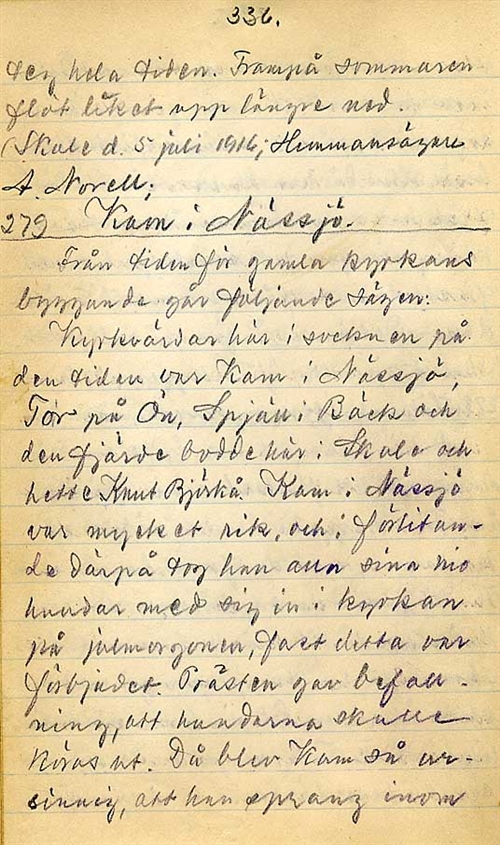 336.
tey hela tiden. Frampå sommaren
flöt liket upp längre ned.
(Skule d. 5 juli 1916; Hemmansägare
A. Norell;
279 Kam i Nässjö.
Från tiden för gamla kyrkans
byggande går följande sägen:
Kyrkvärdar här i socknen på
den tiden var Kam i Nässjö,
Tor på Ön, Spjäll i Bäck och
den fjärde bodde här i Skule och
hette Knut Björkå. Kam i Nässjö
var mycket rik, och i förlitan-
de därpå tog han alla sina nio
hundar med sig in i kyrkan
på julmorgonen, fast detta var
förbjudet. Prästen gav befall-
ning, att hundarna skulle
köras ut. Då blev Kam så ur-
sinnig, att han sprang inom